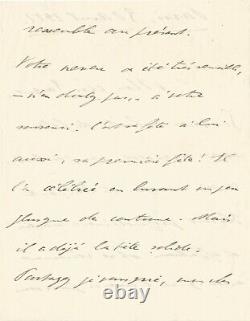 ressemble au présent.
Votre neveu a été très sensible,
n'en doutez pas, à votre
souvenir. C'est sa fête à lui
aussi, sa première fête! Il
l'a célébrée en buvant un peu
plus que de coutume. Mais
il a déjà la tête solide.
Partagez, je vous prie, mes chers